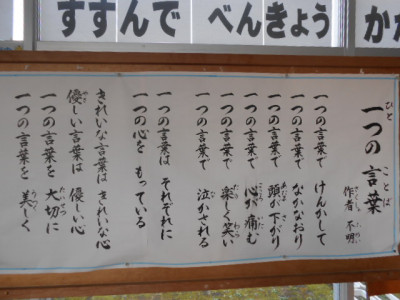 すすんで べんきょう か
一つの言葉
ひと ことば
作者 不明
さくしゃ ふめい
一つの言葉で けんかして
一つの言葉で なかなおり
一つの言葉で 頭が下がり
あたま さ
一つの言葉で 心が痛む
こころ いた
一つの言葉で 楽しく笑い
たの わら
一つの言葉で 泣かされる
な
一つの言葉は それぞれに
一つの心を もっている
きれいな言葉は きれいな心
優しい言葉は 優しい心
やさ
一つの言葉を 大切に
たいせつ
一つの言葉を 美しく
うつく